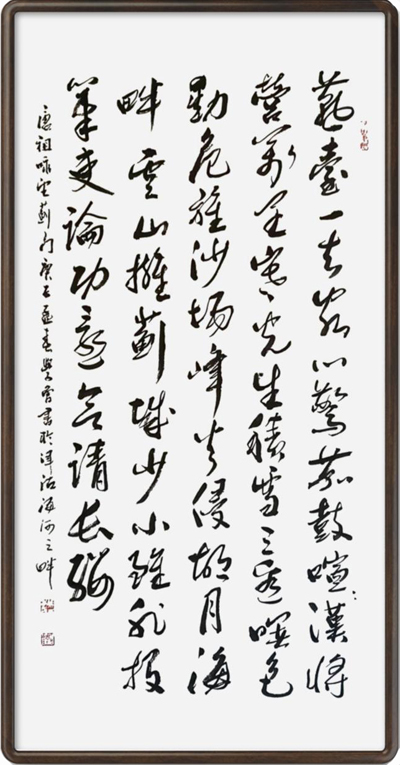 燕臺一去客心驚笳鼓喧々漢將
營萬里寒光生積雪三邊曙色
動危旌沙場峰火侵胡月海
畔雲山擁薊城少小雖非投
筆吏論功還欲請長纓
唐祖咏望薊門庚子春學曾書於津沽海河之畔